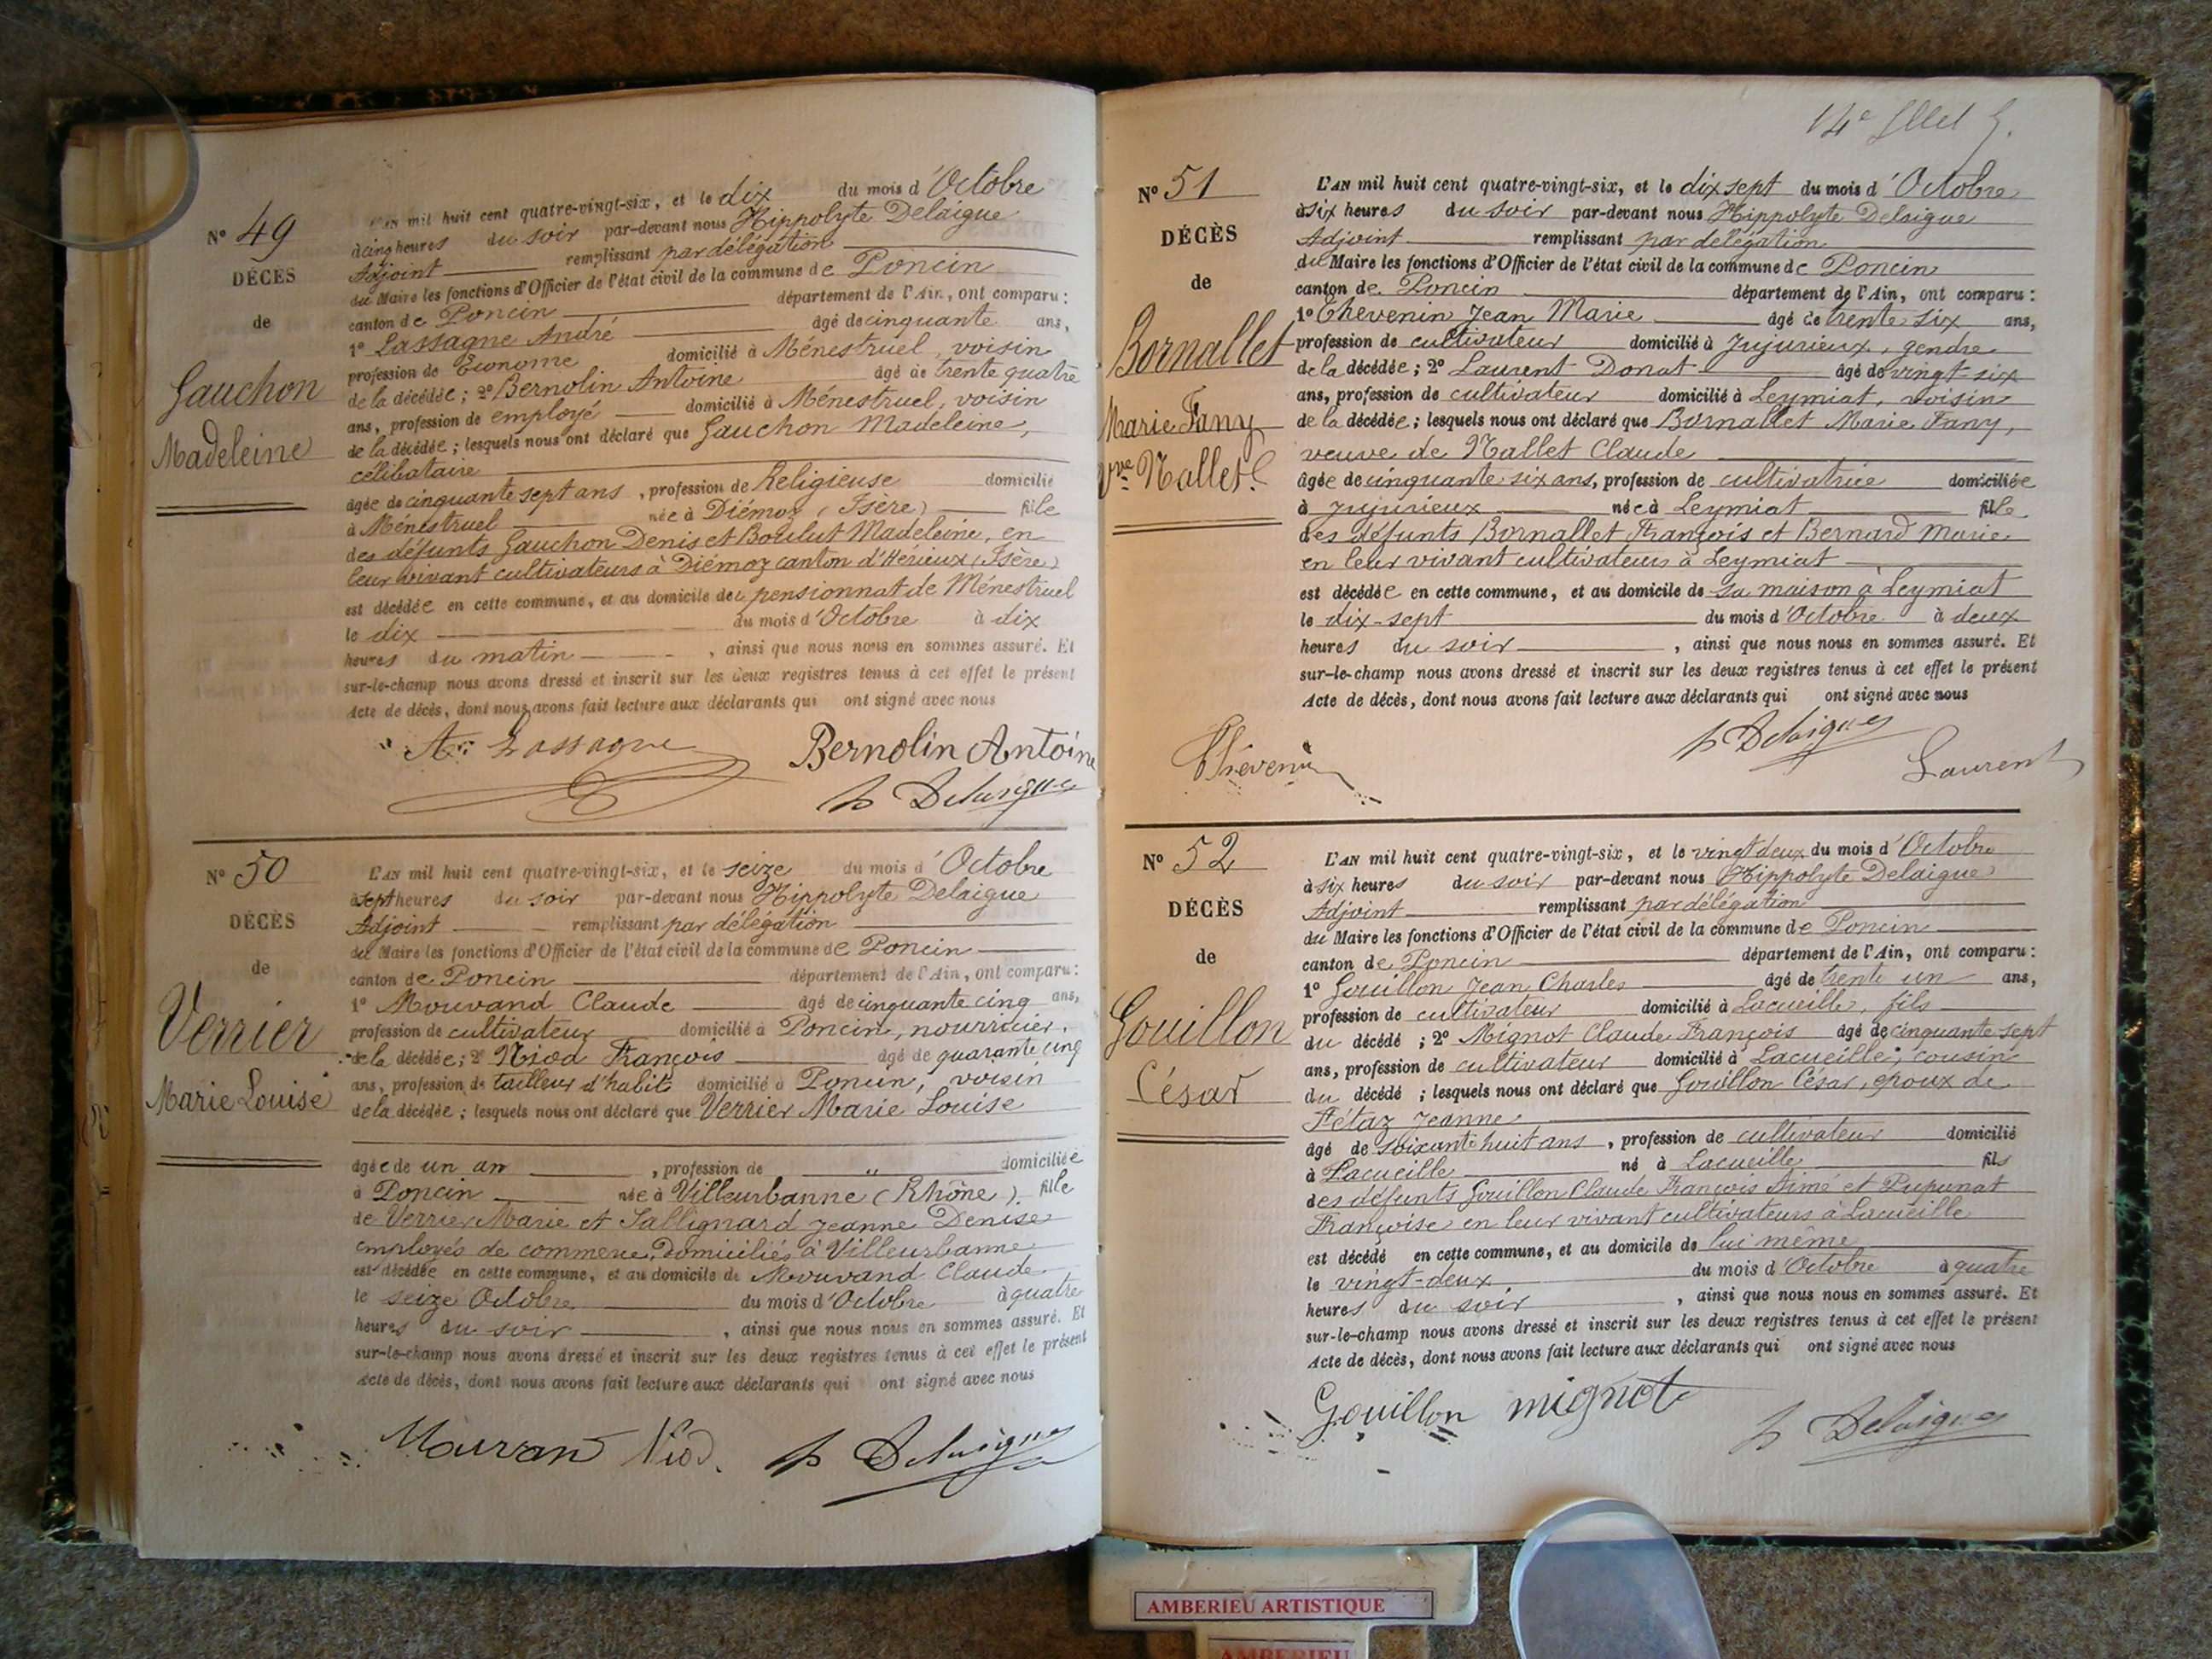 Nº 49
DÉCES
de
Gauchon
Madeleine
L'AN mil huit cent quatre-vingt-six, et le dix du mois d'Octobre
à cinq heures du soir par-devant nous Hippolyte Delaigue
Adjoint remplissant par délégation
du Maire les fonctions d'Officier de l'état civil de la commune de Poncin
canton de Poncin département de l'Ain, ont comparu :
1º Lassagne André âgé de cinquante ans,
profession de Econome domicilié à Ménestruel, voisin
de la décédée ; 2º Bernolin Antoine âgé de trente quatre
ans, profession de employé domicilié à Ménestruel, voisin
de la décédée ; lesquels nous ont déclaré que Gauchon Madeleine,
célibataire
âgée de cinquante sept ans, profession de Religieuse domicilié
à Ménestruel née à Diémoz (Isère) fille
des défunts Gauchon Denis et Boulut Madeleine, en
leur vivant cultivateurs à Diémoz canton d'Hérieux (Isère)
est décédée en cette commune, et au domicile de pensionnat de Ménestruel
le dix du mois d'Octobre à dix
heures du matin, ainsi que nous nous en sommes assuré. Et
sur-le-champ nous avons dressé et inscrit sur les deux registres tenus à cet effet le présent
Acte de décès, dont nous avons fait lecture aux déclarants qui ont signé avec nous
A. Lassagne Bernolin Antoine
h Delaigue
Nº 50
DÉCÈS
de
Verrier
Marie Louise
L'AN mil huit cent quatre-vingt-six, et le seize du mois d'Octobre
à sept heures du soir par-devant nous Hippolyte Delaigue
Adjoint remplissant par délégation
du Maire les fonctions d'Officier de l'état civil de la commune de Poncin
canton de Poncin département de l'Ain, ont comparu :
1º Mouvand Claude âgé de cinquante cinq ans,
profession de cultivateur domicilié à Poncin, nourricier,
de la décédée ; 2º Niod François âgé de quarante cinq
ans, profession de tailleur d'habits domicilié à Poncin, voisin
de la décédée ; lesquels nous ont déclaré que Verrier Marie Louise
âgée de un an, profession de " domiciliée
à Poncin née à Villeurbanne (Rhône). fille
de Verrier Marie et Sallignard Jeanne Denise
employés de commerce, domiciliés à Villeurbanne
est décédée en cette commune, et au domicile de Mouvand Claude
le seize Octobre du mois d'Octobre à quatre
heures du soir, ainsi que nous nous en sommes assuré. Et
sur-le-champ nous avons dressé et inscrit sur les deux registres tenus à cet effet le présent
Acte de décès, dont nous avons fait lecture aux déclarants qui ont signé avec nous
Mouvan Niod. h Delaigue
14e
Nº 51
DÉCÈS
de
Bornallet
Marie Fany
Vve Nallet C
L'AN mil huit cent quatre-vingt-six, et le dix sept du mois d'Octobre
à six heures du soir par-devant nous Hippolyte Delaigue
Adjoint remplissant par délégation
du Maire les fonctions d'Officier de l'état civil de la commune de Poncin
canton de Poncin département de l'Ain, ont comparu :
1º Thevenin Jean Marie âgé de trente six ans,
profession de cultivateur domicilié à Jujurieux, gendre
de la décédée ; 2º Laurent Donat âgé de vingt-six
ans, profession de cultivateur domicilié à Leymiat, voisin
de la décédée ; lesquels nous ont déclaré que Bornallet Marie Fany,
veuve de Nallet Claude
âgée de cinquante six ans, profession de cultivatrice domiciliée
à Jujurieux née à Leymiat fille
des défunts Bornallet François et Bernard Marie
en leur vivant cultivateurs à Leymiat
est décédée en cette commune, et au domicile de sa maison à Leymiat
le dix-sept du mois d'Octobre à deux
heures du soir, ainsi que nous nous en sommes assuré. Et
sur-le-champ nous avons dressé et inscrit sur les deux registres tenus à cet effet le présent
Acte de décès, dont nous avons fait lecture aux déclarants qui ont signé avec nous
Thévenin h Delaigue Laurent
Nº 52
DÉCÈS
de
Gouillon
César
L'AN mil huit cent quatre-vingt-six, et le vingt deux du mois d'Octobre
à six heures du soir par-devant nous Hippolyte Delaigue
Adjoint remplissant par délégation
du Maire les fonctions d'Officier de l'état civil de la commune de Poncin
canton de Poncin département de l'Ain, ont comparu :
1º Gouillon Jean Charles âgé de trente un ans,
profession de cultivateur domicilié à Lacueille, fils
du décédé ; 2º Mignot Claude François âgé de cinquante sept
ans, profession de cultivateur domicilié à Lacueille, cousin
du décédé ; lesquels nous ont déclaré que Gouillon César, époux de
Fétaz Jeanne
âgé de soixante huit ans, profession de cultivateur domicilié
à Lacueille né à Lacueille fils
des défunts Gouillon Claude François Aimé et Pupunat
Françoise en leur vivant cultivateurs à Lacueille
est décédé en cette commune, et au domicile de lui même
le vingt-deux du mois d'Octobre à quatre
heures du soir, ainsi que nous nous en sommes assuré. Et
sur-le-champ nous avons dressé et inscrit sur les deux registres tenus à cet effet le présent
Acte de décès, dont nous avons fait lecture aux déclarants qui ont signé avec nous
Gouillon mignot h Delaigue
AMBERIEU ARTISTIQUE
AMBERIEU